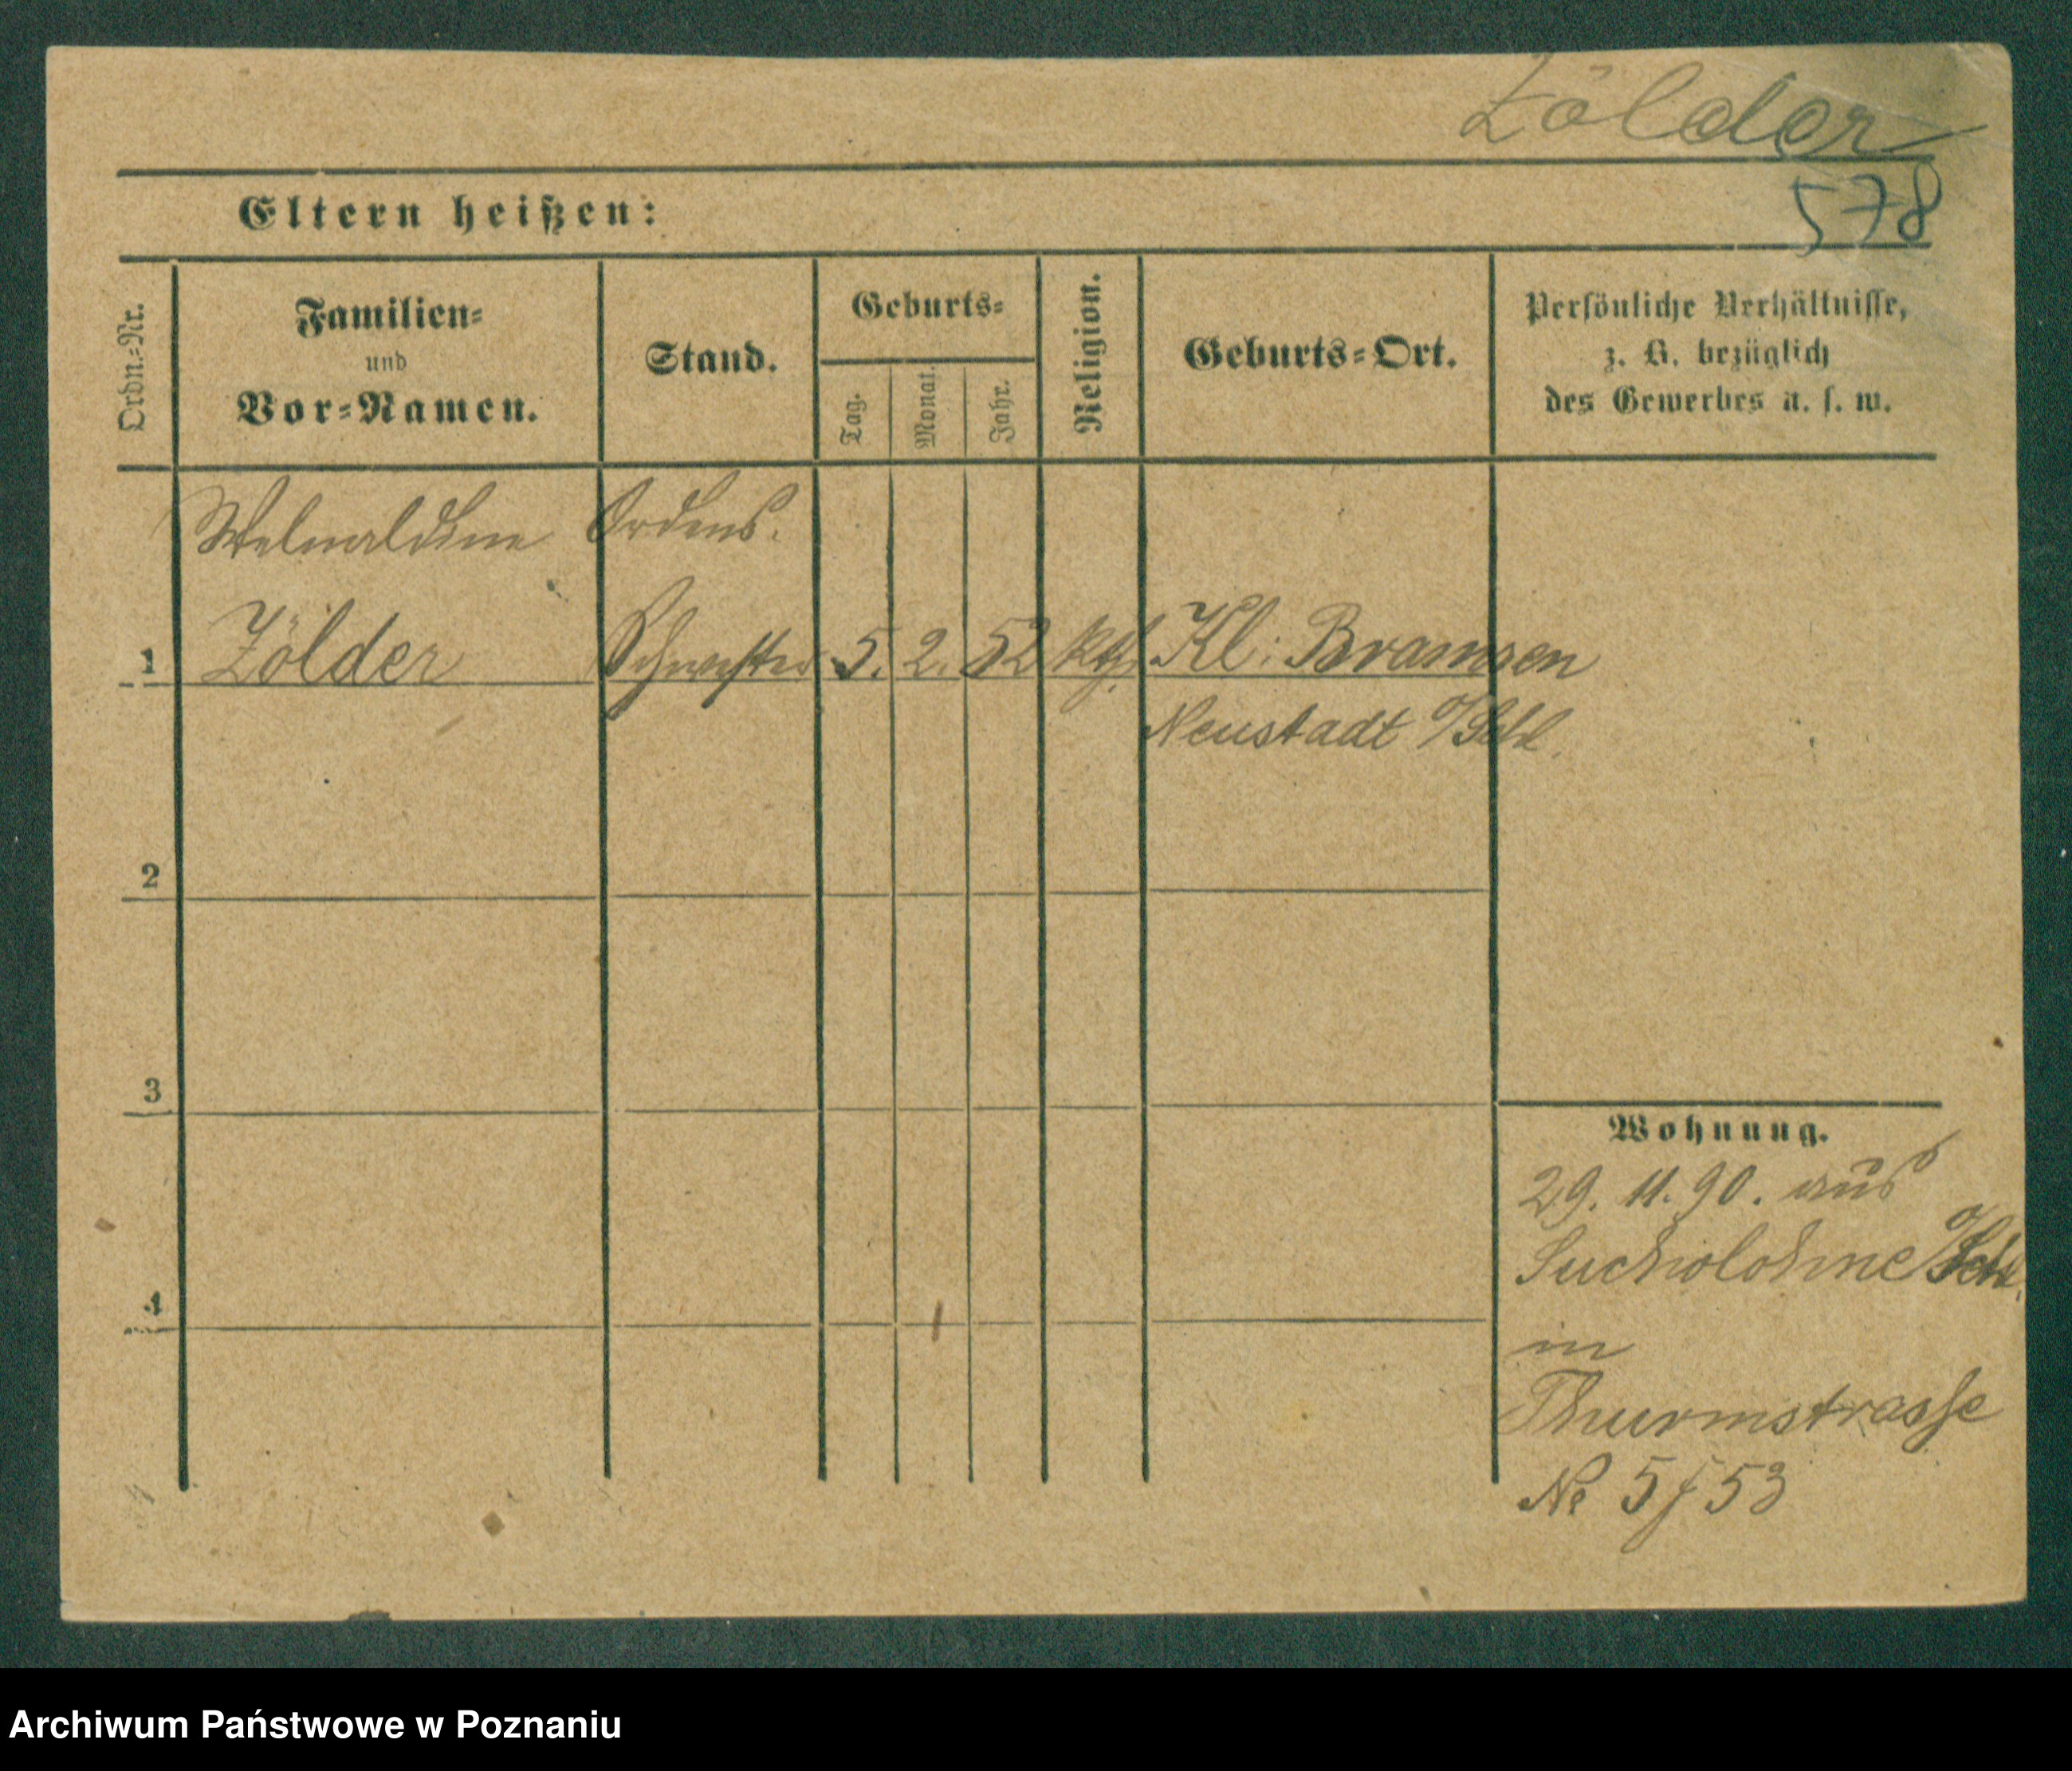 Zölder
578
Eltern heißen:
Ordn.-Nr.
Familien-
und
Vor-Namen.
Stand.
Geburts-
Tag.
Monat.
Jahr.
Religion.
Geburts-Ort.
Persönliche Verhältnisse,
z. B. bezüglich
des Gewerbes u. s. w.
Ordens.
1 Zölder Schwester 5. 2. 52 kth. Kl: Bramsen
Neustadt O/Schl.
2
3
4
Wohnung.
29. 11. 90. aus
O/Schl.
in
Thurmstrasse
No 53
Archiwum Państwowe w Poznaniu